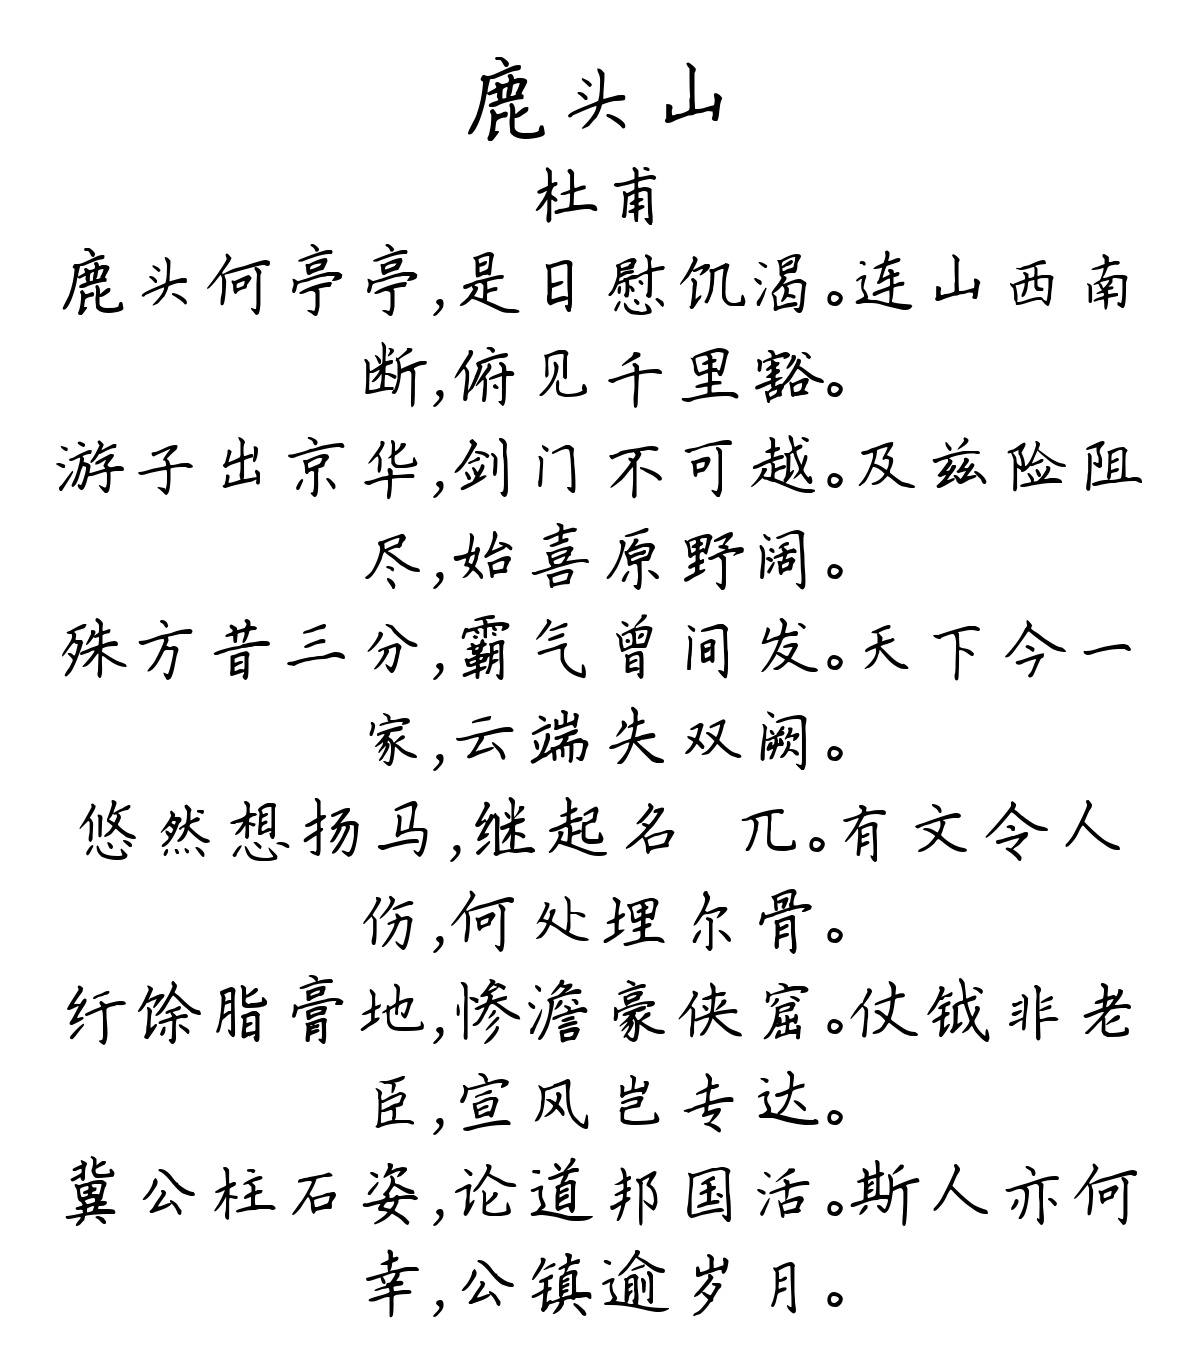 鹿头山
杜甫
鹿头何亭亭,是日慰饥渴。连山西南
断,俯见千里豁。
游子出京华,剑门不可越。及兹险阻
尽,始喜原野阔。
殊方昔三分,霸气曾间发。天下今一
家,云端失双阙。
悠然想扬马,继起名 兀。有文令人
伤,何处埋尔骨。
纡馀脂膏地,惨澹豪侠窟。仗钺非老
臣,宣风岂专达。
冀公柱石姿,论道邦国活。斯人亦何
幸,公镇逾岁月。